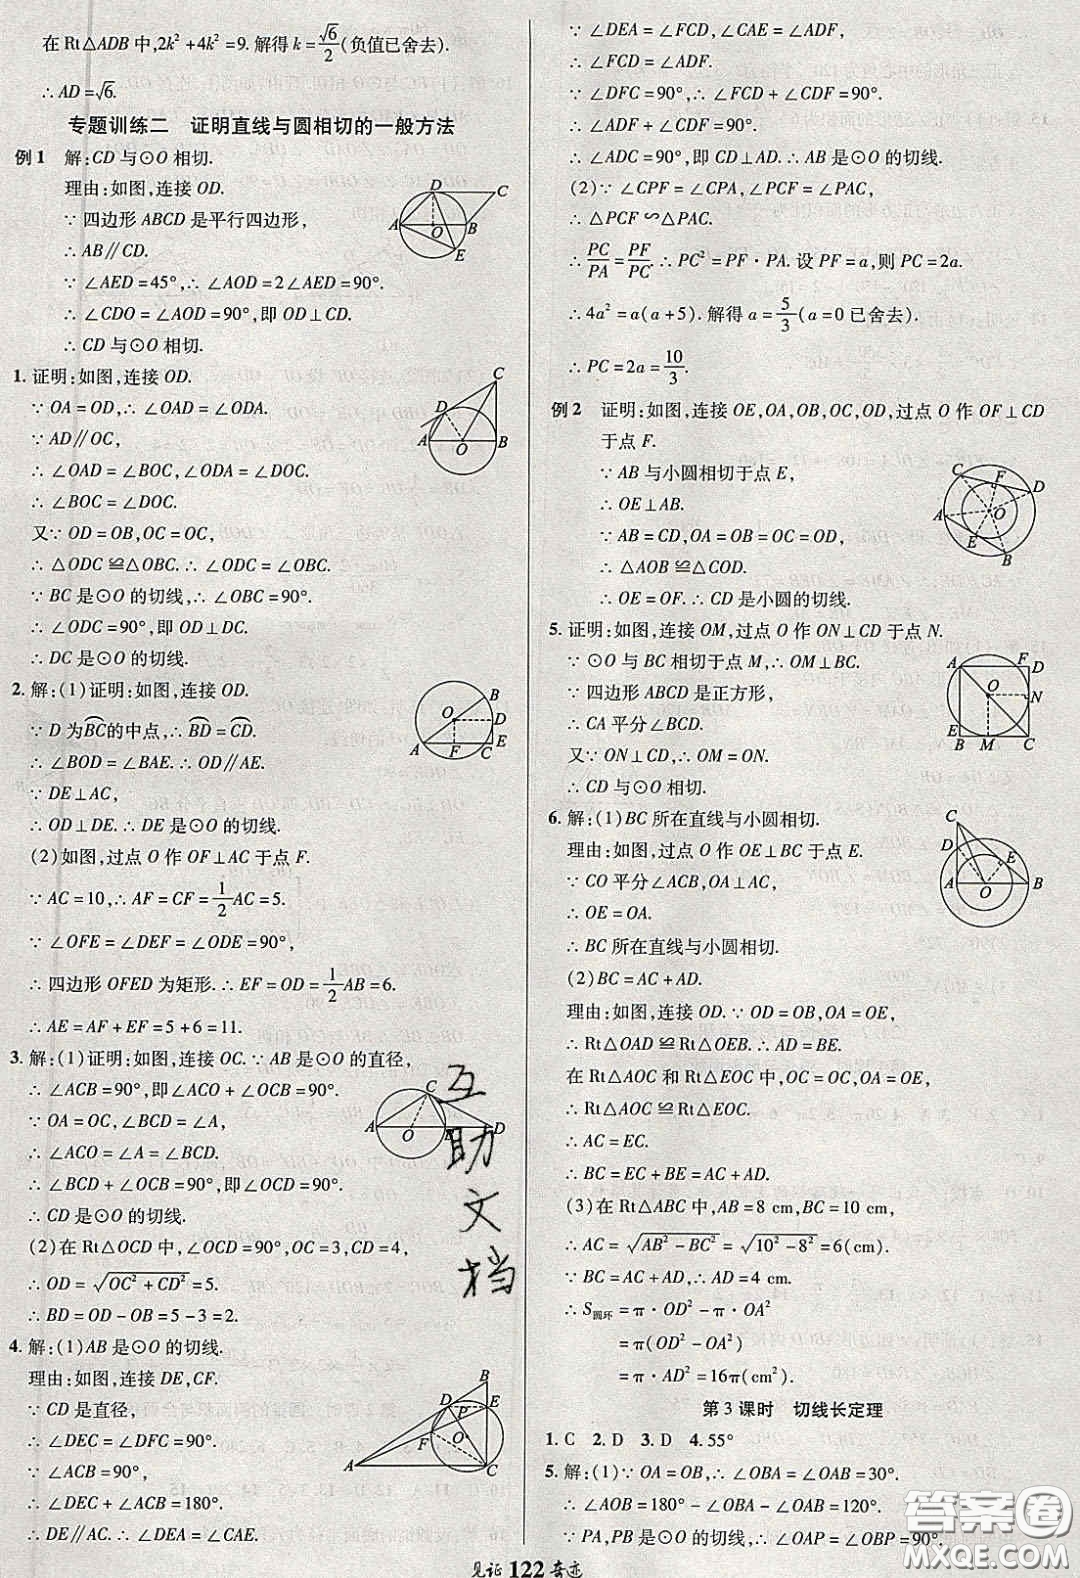 在 Rt△ADB 中,2k²+4k²=9. 解得 k=√6/2(负值已舍去).
∴ AD=√6.
专题训练二 证明直线与圆相切的一般方法
例1 解:CD 与⊙O 相切.
理由:如图,连接 OD.
∵ 四边形 ABCD 是平行四边形,
∴ AB∥CD.
∵ ∠AED=45°,∴ ∠AOD=2∠AED=90°.
∴ ∠CDO=∠AOD=90°,即 OD⊥CD.
∴ CD 与⊙O 相切.
1. 证明:如图,连接 OD.
∵ OA=OD,∴ ∠OAD=∠ODA.
∵ AD∥OC,
∴ ∠OAD=∠BOC,∠ODA=∠DOC.
∴ ∠BOC=∠DOC.
又∵ OD=OB,OC=OC,
∴ △ODC≌△OBC.∴ ∠ODC=∠OBC.
∵ BC 是⊙O 的切线,∴ ∠OBC=90°.
∴ ∠ODC=90°,即 OD⊥DC.
∴ DC 是⊙O 的切线.
2. 解:(1)证明:如图,连接 OD.
∵ D 为B͡C的中点,∴ B͡D=C͡D.
∴ ∠BOD=∠BAE.∴ OD∥AE.
∵ DE⊥AC,
∴ OD⊥DE.∴ DE 是⊙O 的切线.
(2)如图,过点 O 作 OF⊥AC 于点 F.
∵ AC=10,∴ AF=CF=1/2AC=5.
∵ ∠OFE=∠DEF=∠ODE=90°,
∴ 四边形 OFED 为矩形.∴ EF=OD=1/2AB=6.
∴ AE=AF+EF=5+6=11.
3. 解:(1)证明:如图,连接 OC.∵ AB 是⊙O 的直径,
∴ ∠ACB=90°,即∠ACO+∠OCB=90°.
∵ OA=OC,∠BCD=∠A,
∴ ∠ACO=∠A=∠BCD.
∴ ∠BCD+∠OCB=90°,即∠OCD=90°.
∴ CD 是⊙O 的切线.
(2)在 Rt△OCD 中,∠OCD=90°,OC=3,CD=4,
∴ OD=√(OC²+CD²)=5.
∴ BD=OD-OB=5-3=2.
4. 解:(1)AB 是⊙O 的切线.
理由:如图,连接 DE,CF.
∵ CD 是直径,
∴ ∠DEC=∠DFC=90°.
∵ ∠ACB=90°,
∴ ∠DEC+∠ACB=180°.
∴ DE∥AC.∴ ∠DEA=∠CAE.
互
助
文
档
∵ ∠DEA=∠FCD,∠CAE=∠ADF,
∴ ∠FCD=∠ADF.
∵ ∠DFC=90°,∴ ∠FCD+∠CDF=90°.
∴ ∠ADF+∠CDF=90°.
∴ ∠ADC=90°,即 CD⊥AD.∴ AB 是⊙O 的切线.
(2)∵ ∠CPF=∠CPA,∠PCF=∠PAC,
∴ △PCF∽△PAC.
∴ PC/PA=PF/PC.∴ PC²=PF·PA. 设 PF=a,则 PC=2a.
∴ 4a²=a(a+5). 解得 a=5/3(a=0 已舍去).
∴ PC=2a=10/3.
例2 证明:如图,连接 OE,OA,OB,OC,OD,过点 O 作 OF⊥CD
于点 F.
∵ AB 与小圆相切于点 E,
∴ OE⊥AB.
∵ AB=CD,OA=OB=OC=OD,
∴ △AOB≌△COD.
∴ OE=OF.∴ CD 是小圆的切线.
5. 证明:如图,连接 OM,过点 O 作 ON⊥CD 于点 N.
∵ ⊙O 与 BC 相切于点 M,∴ OM⊥BC.
∵ 四边形 ABCD 是正方形,
∴ CA 平分∠BCD.
又∵ ON⊥CD,∴ OM=ON.
∴ CD 与⊙O 相切.
6. 解:(1)BC 所在直线与小圆相切.
理由:如图,过点 O 作 OE⊥BC 于点 E.
∵ CO 平分∠ACB,OA⊥AC,
∴ OE=OA.
∴ BC 所在直线与小圆相切.
(2)BC=AC+AD.
理由:如图,连接 OD.∵ OD=OB,OA=OE,
∴ Rt△OAD≌Rt△OEB.∴ AD=BE.
在 Rt△AOC 和 Rt△EOC 中,OC=OC,OA=OE,
∴ Rt△AOC≌Rt△EOC.
∴ AC=EC.
∴ BC=EC+BE=AC+AD.
(3)在 Rt△ABC 中,AB=8 cm,BC=10 cm,
∴ AC=√(AB²-BC²)=√(10²-8²)=6(cm).
∵ BC=AC+AD,∴ AD=4 cm.
∴ S圆环=π·OD²-π·OA²
=π(OD²-OA²)
=π·AD²=16π(cm²).
第3课时 切线长定理
1. C 2. D 3. D 4. 55°
5. 解:(1)∵ OA=OB,∴ ∠OBA=∠OAB=30°.
∴ ∠AOB=180°-∠OBA-∠OAB=120°.
∵ PA,PB 是⊙O 的切线,∴ ∠OAP=∠OBP=90°.
见证 122 奇迹
答案圈
MXQE.COM